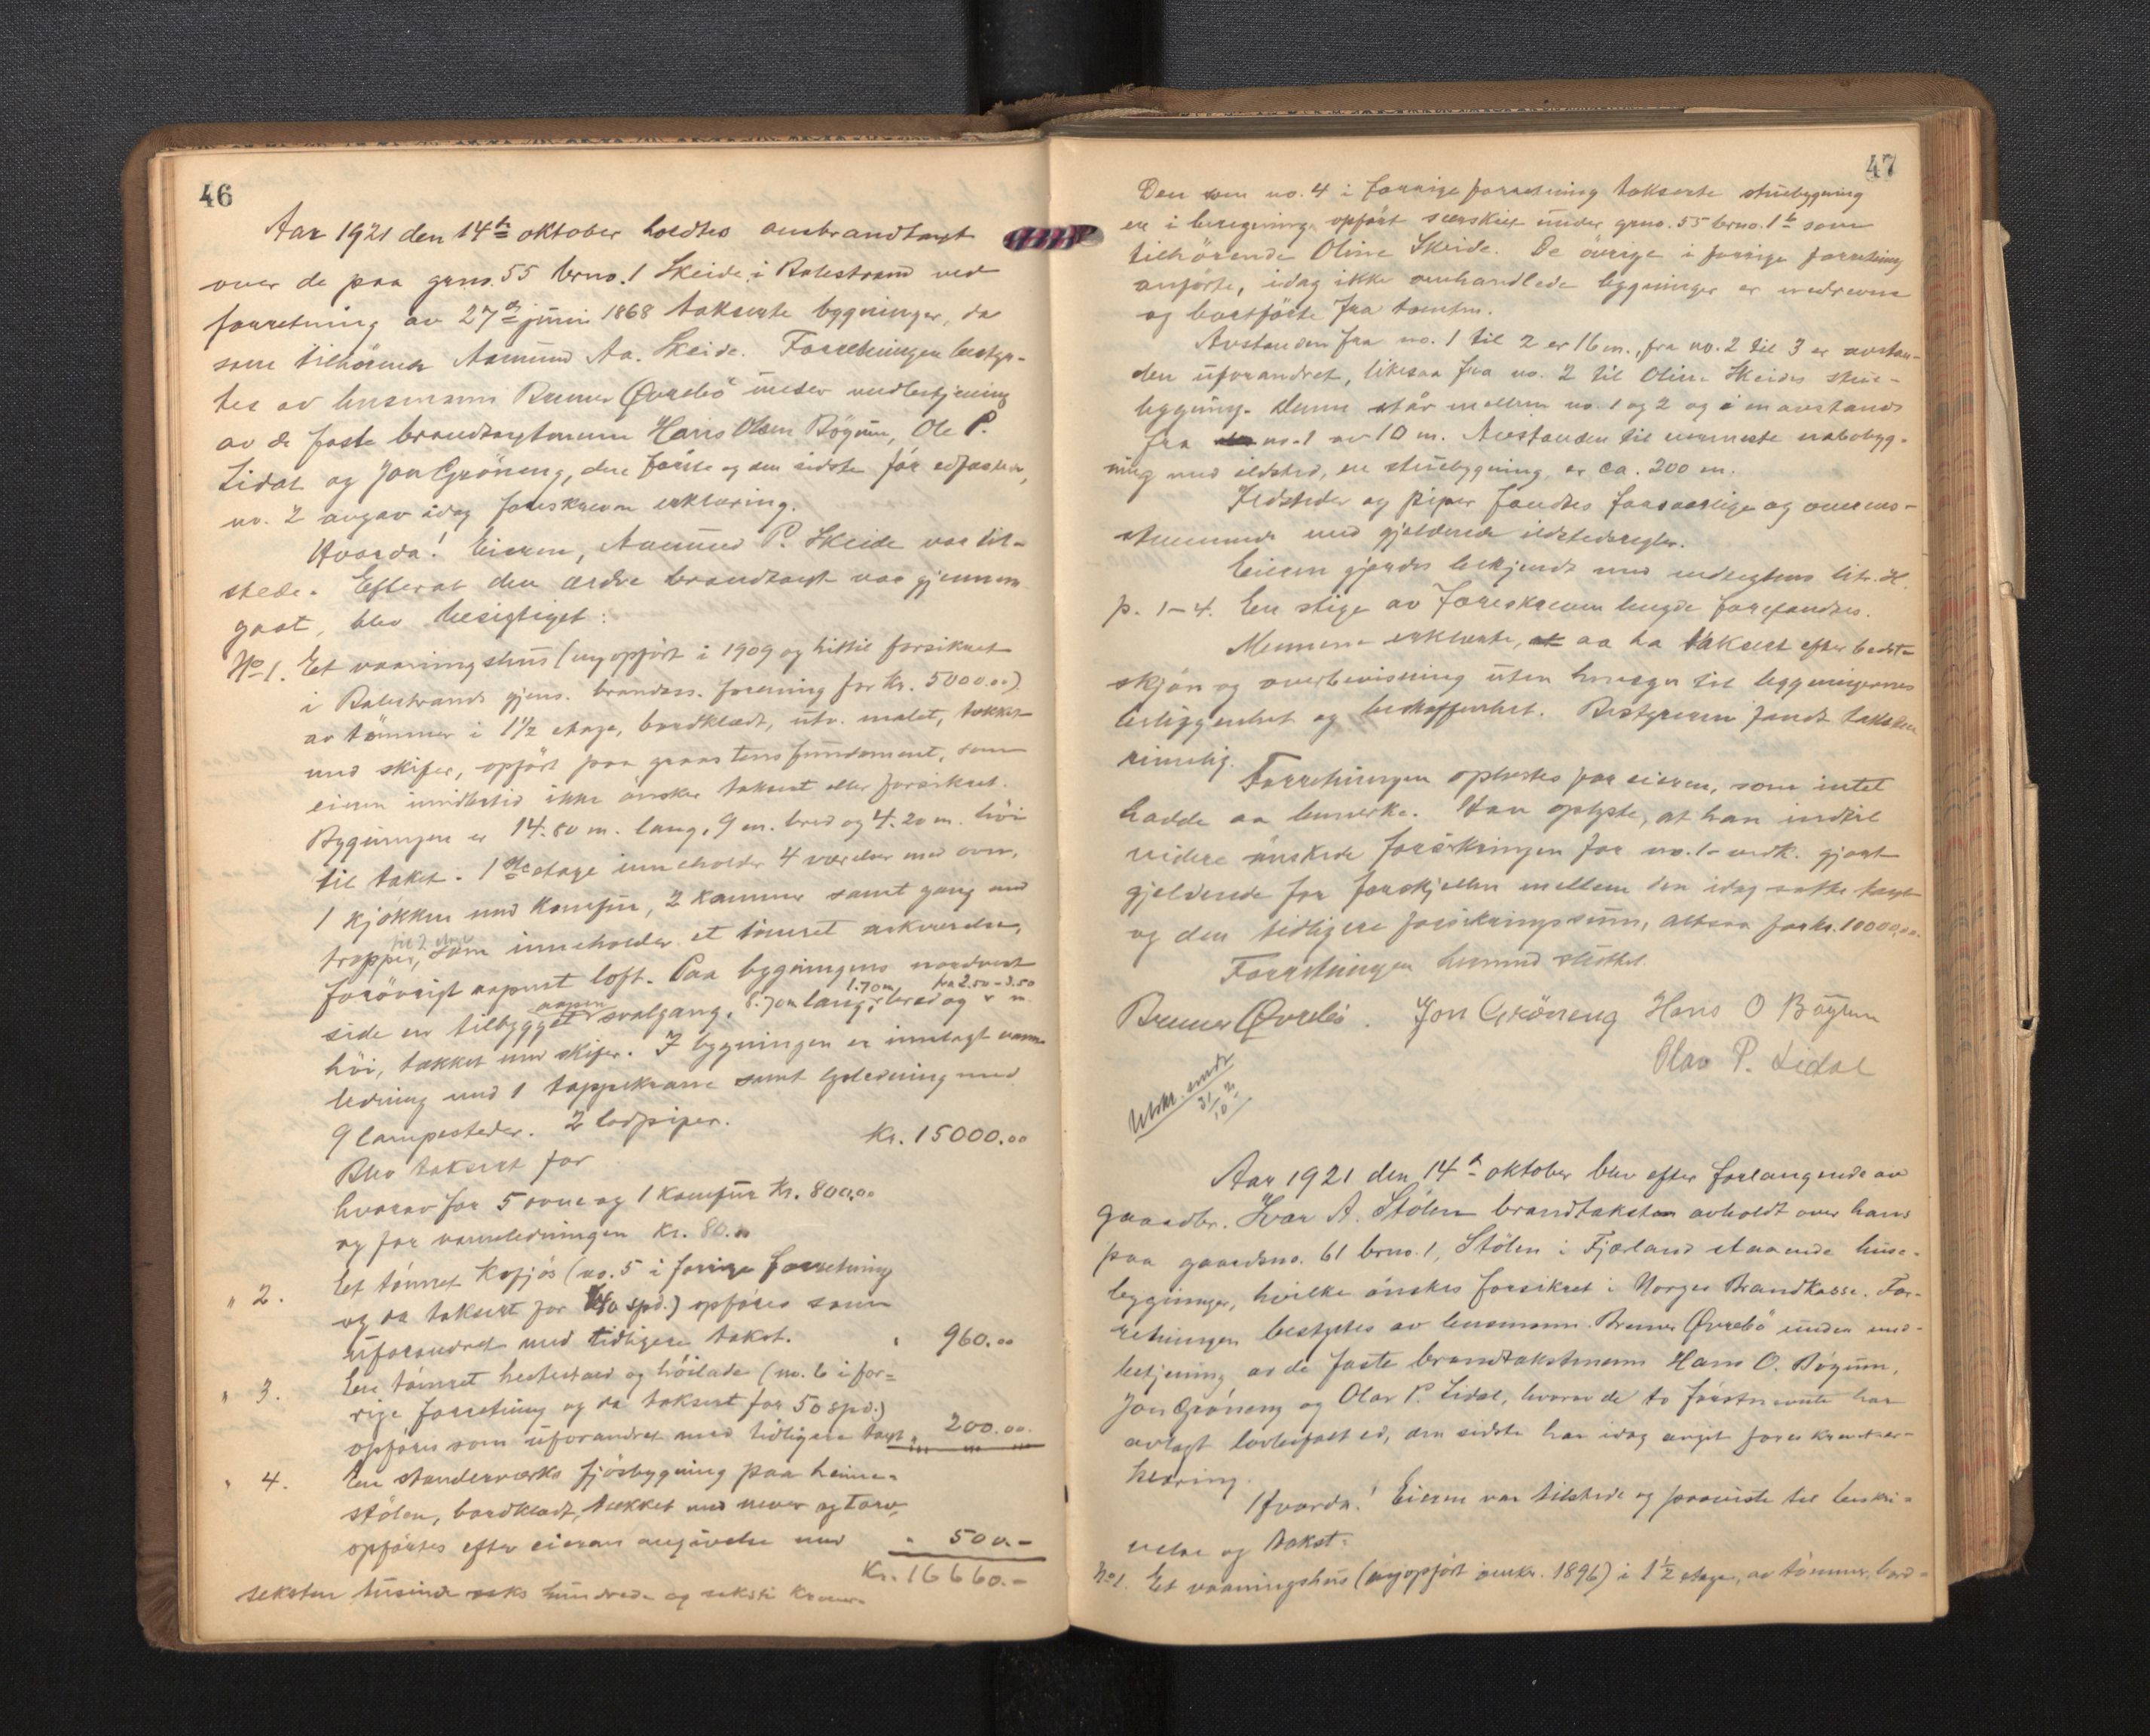 46
Aar 1921 den 14de oktober holdtes ombrandtaxt
over de paa grno. 55 brno. 1 Skeide i Balestrand ved
forretning av 27de juni 1868 takserte bygninger, de
som tilhörende Asmund Aa. Skeide. Forretningen besty-
tes av lensmann Bremer Øvrebö under medbetjening
av de faste brandtaxtmenn Hans Olsen Bögum, Ole P.
Lidal og Jon Gröneng, den förste og den sidste för edfæstet,
no. 2 avgav idag foreskreven erklæring.
Hvorda! Eieren, Asmund P. Skeide var til-
stede. Efterat den ældre brandtaxt var gjennem
gaat, blev besigtiget:
No 1. Et vaaningshus (nyopfört i 1909 og hittil forsikret
i Balestrands gjens. brandass. forening for kr. 5000.00)
av tömmer i 1½ etage, bordklædt, utv. malet, tækket
med skifer, opfört paa graastensfundament, som
eieren imidlertid ikke önsker taksert eller forsikret.
Bygningen er 14.80 m. lang, 9 m. bred og 4.20 m. höi
til taket. 1ste etage inneholder 4 værelser med ovn,
1 kjökken med komfur, 2 kammer samt gang med
trapper, til 2. etage som inneholder et tömret arkværelse,
forövrigt aapent loft. Paa bygningens nordvest
side er tilbygget aapen svalgang, 8.70 m lang, 1.70 m bred og fra 2.50 - 3.50 m.
höi, tækket med skifer. I bygningen er inntagt vann-
ledning med 1 tappekrane samt lysledning med
9 lampesteder. 2 lodpiper.
Blev taksert for Kr. 15000.00
hvorav for 5 ovne og 1 komfur Kr. 800.00
og for vannledningen Kr. 80.00
" 2. Et tömret kofjös (no. 5 i forrige forretning
og da taksert for 240 spd.) opföres som
uforandret med tidligere takst. " 960.00
" 3. En tömret hestestald og höilade (no. 6 i for-
rige forretning og da taksert for 50 spd.)
opföres som uforandret med tidligere taxt " 200.00
" 4. En standerværks fjösbygning paa heime-
stölen, bordklædt, tækket med never og torv,
opförtes efter eierens angivelse med " 500.-
Kr. 16660.-
seksten tusinde seks hundrede og seksti kroner
47
Den som no. 4 i forrige forretning takserte stuebygning
er i beregning opfört særskilt under grno. 55 brno. 1b som
tilhörende Oline Skeide. De övrige i forrige forretning
anförte, idag ikke omhandlede bygninger er nedrevne
og bortförte fra tomten.
Avstanden fra no. 1 til 2 er 16 m., fra no. 2 til 3 er avstan-
den uforandret, likesaa fra no. 2 til Oline Skeides stue-
bygning. Denne står mellem no. 1 og 2 og i en avstand
fra no. 1 av 10 m. Avstanden til nærmeste nabobyg-
ning med ildsted, en stuebygning, er ca. 200 m.
Ildsteder og piper fandtes forsvarlige og overens-
stemmende med gjeldende ildstedsregler.
Eieren gjordes bekjendt med vedtægtens litr. H.
p. 1-4. En stige av foreskreven lengde forefandtes.
Mennene erklærte, at aa ha taksert efter bedste
skjön og overbevisning uten hensyn til bygningernes
beliggenhet og beskaffenhet. Bestyreren fandt taksten
rimelig.
Forretningen oplæstes for eieren, som intet
hadde aa bemerke. Han oplyste, at han indtil
videre önskede forsikringen for no. 1 - vedk. gjort
gjeldende for forskjellen mellem den idag satte taxt
og den tidligere forsikringssum, altsaa for kr. 10000.00.
Forretningen hermed sluttet.
Bremer Øvrebö. Jon Gröneng Hans O Bögum
Olav P. Lidal
Utskr. sendt
31/10 21
Aar 1921 den 14de oktober blev efter forlangende av
gaardbr. Ivar A. Stölen brandtakst avholdt over hans
paa gaardsno. 61 brno. 1, Stölen i Fjærland staaende huse-
bygninger, hvilke önskes forsikret i Norges Brandkasse. For-
retningen bestyrtes av lensmann Bremer Øvrebö under med-
betjening av de faste brandtakstmenn Hans O. Bögum,
Jon Gröneng og Olav P. Lidal, hvorav de to förstnevnte har
avlagt lovbefalt ed, den sidste har idag avgit foreskrevet er-
klæring.
Hvorda! Eieren var tilstede og paaviste til beskri-
velse og takst:
No 1. Et vaaningshus (nyopfört omkr. 1896) i 1½ etage, av tömmer, bord-